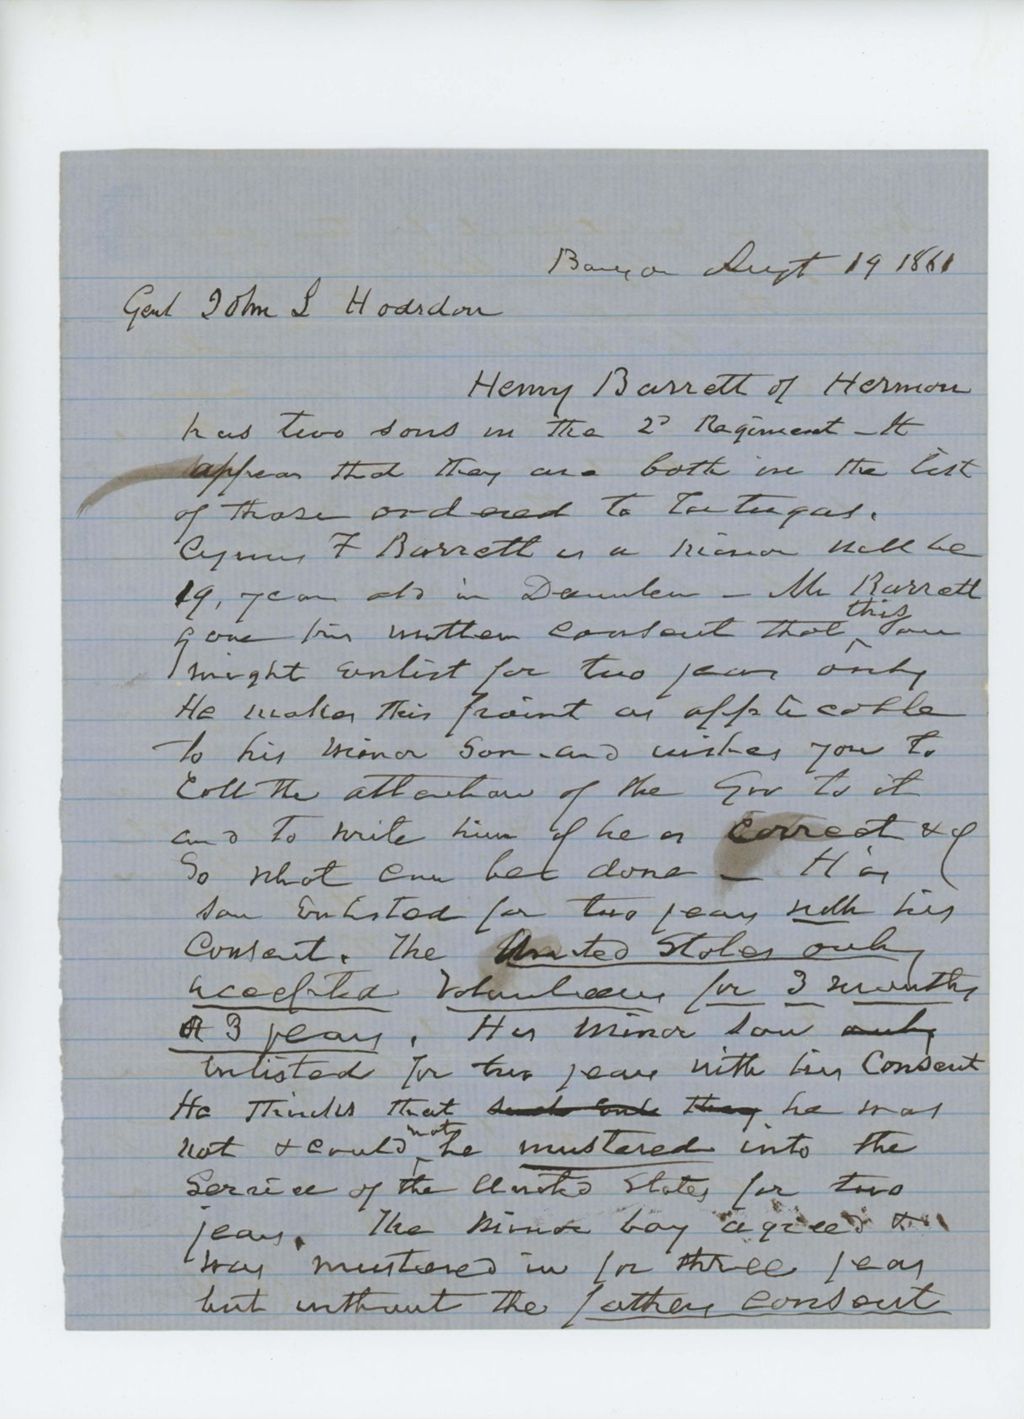 Bangor Augt 19 1861
Genl John L Hodsdon
Henry Barrett of Hermon
has two sons in the 2d Regiment - It
appears that they are both in the list
of those ordered to Tortugas.
Cyrus F Barrett is a minor will be
19, years old in December - Mr Barrett
gave his written consent that this son
might enlist for two years only
He makes this point as applicable
to his minor son - and wishes you to
call the attention of the Gov to it
and to write him if he is correct & if
So what can be done - His
son Enlisted for two years with his
Consent. The United States only
accepted Volunteers for 3 months
or 3 years. His minor son only
enlisted for two years with his Consent
He thinks that he was
not & could not be mustered into the
Service of the United States for two
years. The minor boy agreed &
was mustered in for three years
but without the fathers consent